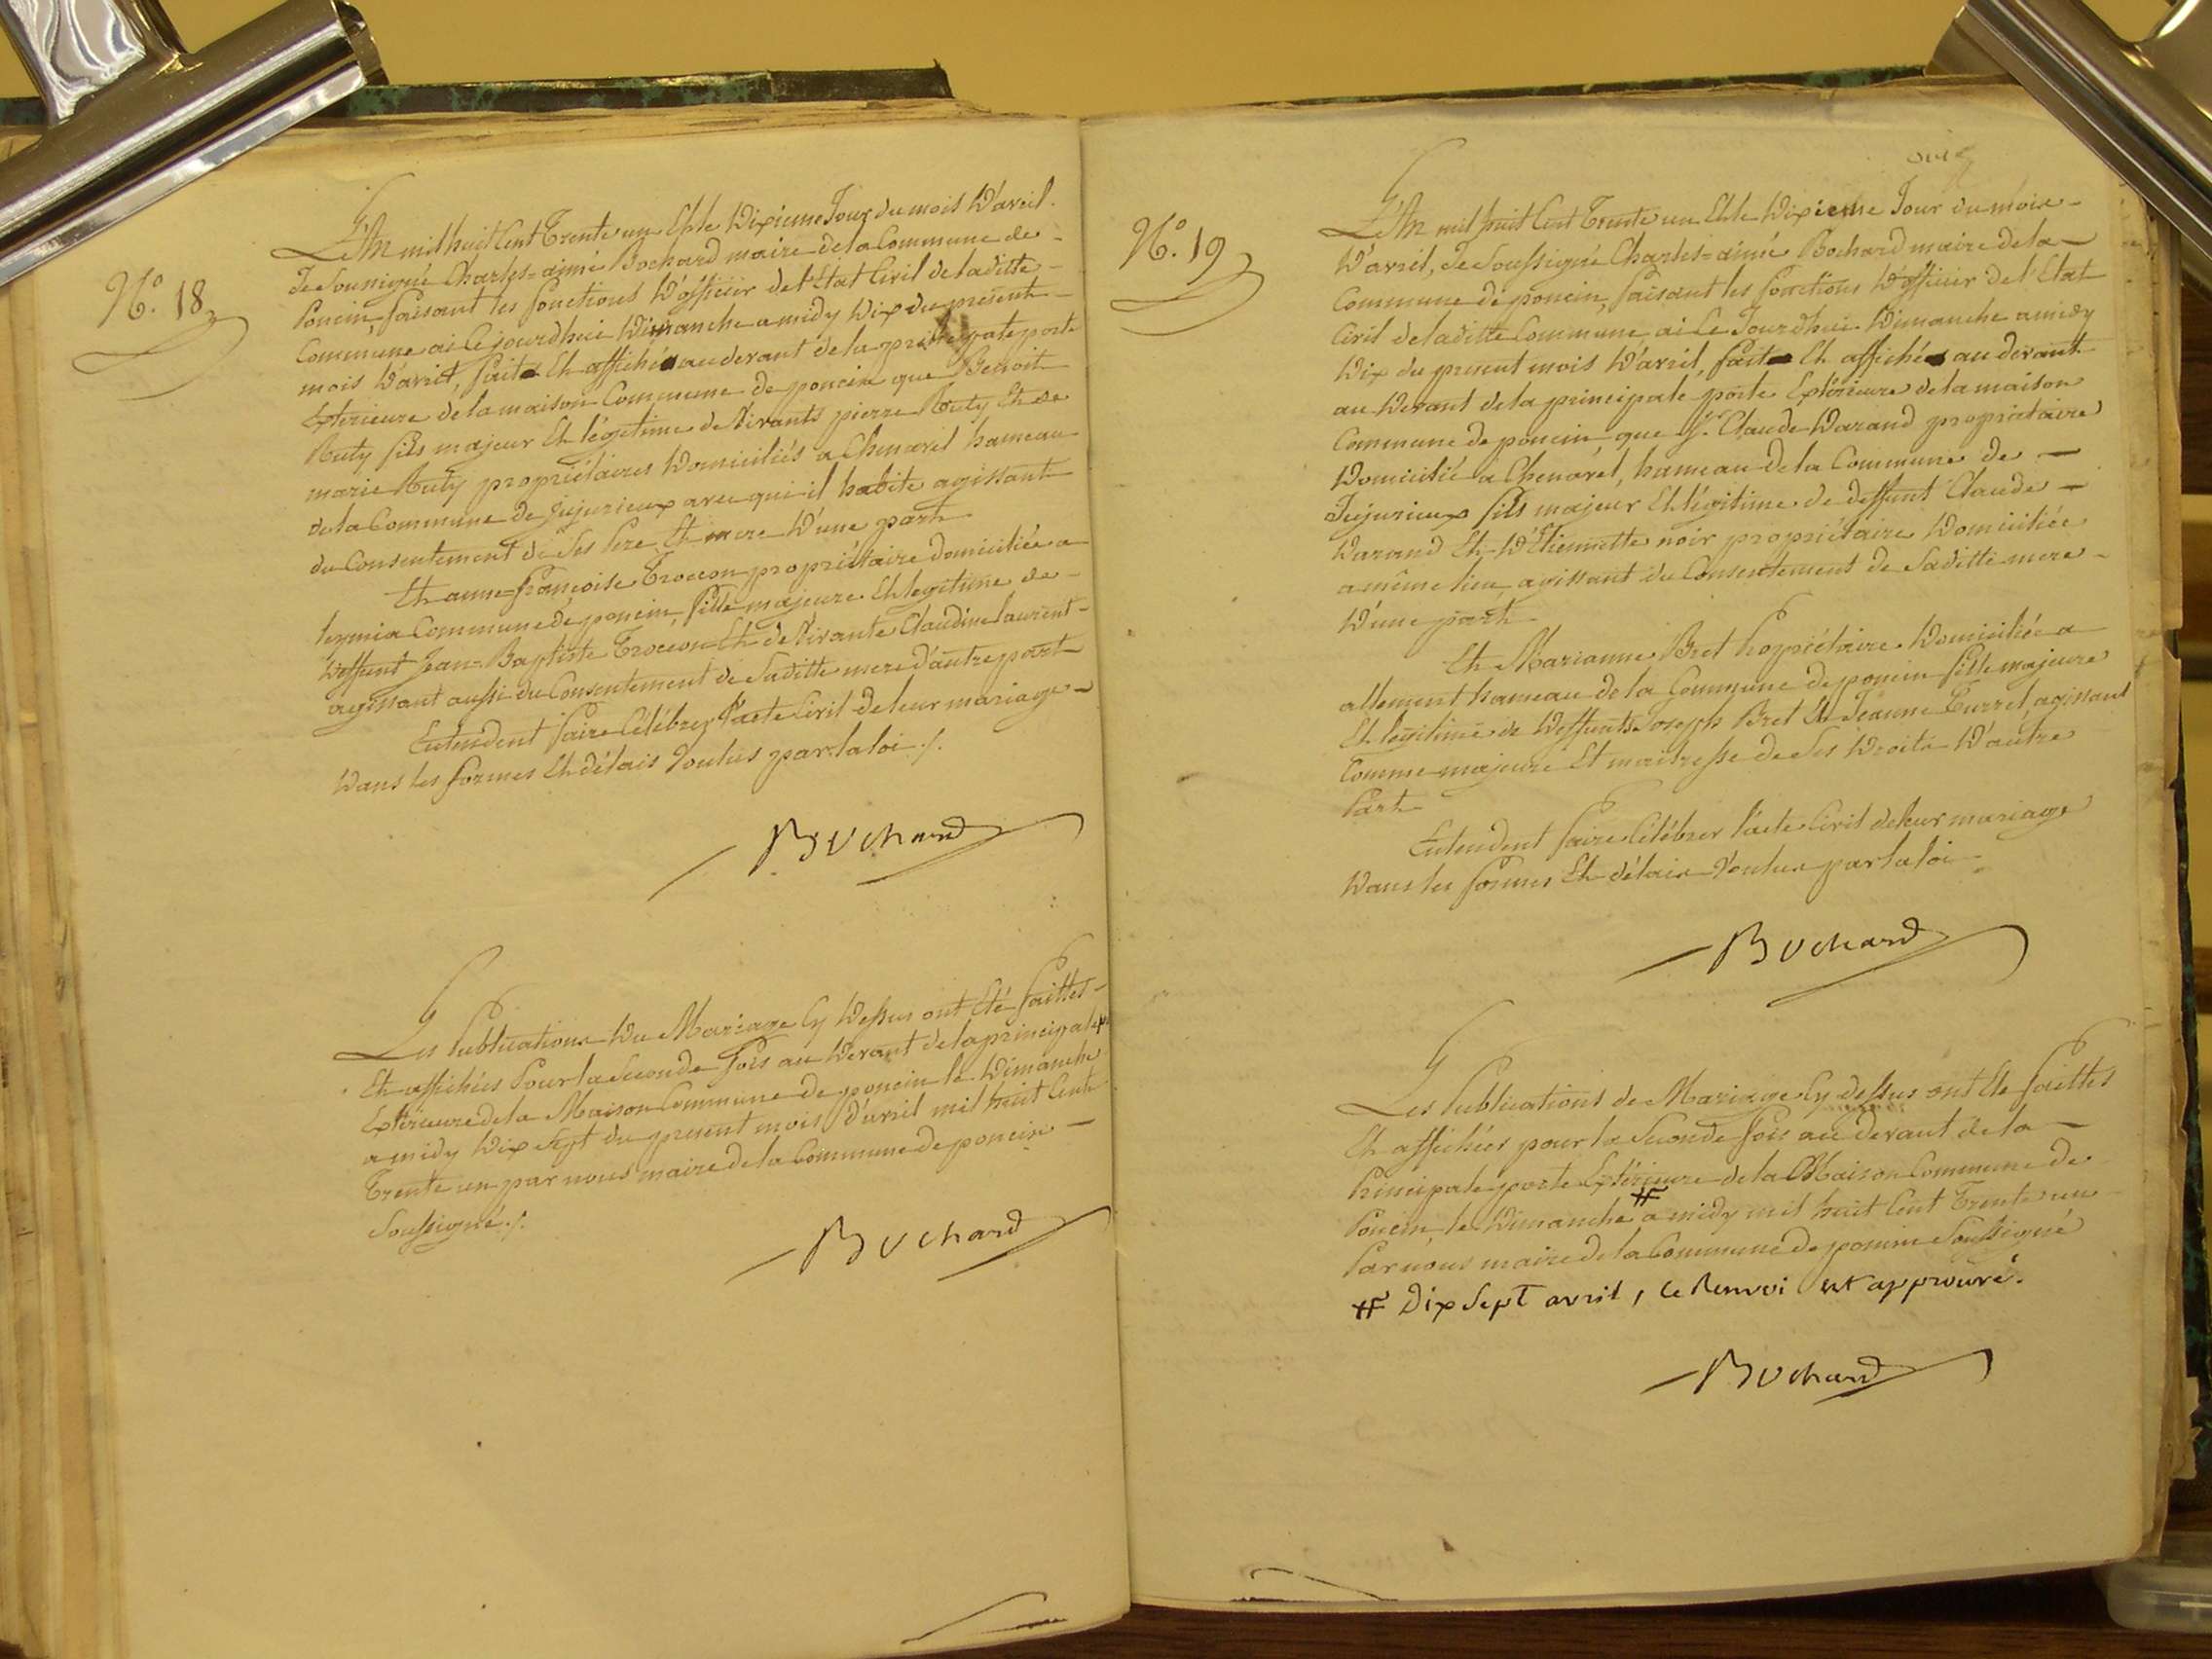 N.° 18
L'An mil huit Cent Trente un Et le Dixieme Jour du mois D'avril.
Je Soussigné Charles=aimé Bochard maire de la Commune de
Poncin, faisant les fonctions D'officier de l'Etat Civil de laditte
Commune ai Cejourdhui Dimanche a midy Dix du présent
mois D'avril, fait Et affiché au devant de la principale porte
Extérieure de la maison Commune de poncin que Benoit
Ruty fils majeur Et légitime de Vivants pierre Ruty Et de
marie Ruty propriétaires Domiciliés a Chenavel hameau
de la Commune de Jujurieux avec qui il habite agissant
du Consentement de Ses Pere Et mere D'une part
Et anne=françoise Troccon propriétaire domiciliée a
Commune de poncin, fille majeure Et legitime de
Deffunt Jean=Baptiste Troccon Et de Vivante Claudine laurent
agissant aussi du Consentement de Saditte mere d'autre part
Entendent faire Célébrer l'acte Civil de leur mariage
Dans les formes Et délais Voulus par la loi ./.
Bochard
Les Publications Du Mariage Cy Dessus ont Eté faittes
Et affichées Pour la Seconde fois au Devant de la principale
Extérieure de la Maison Commune de poncin le Dimanche
a midy Dix Sept du present mois d'avril mil huit Cent
Trente un par nous maire de la Commune de poncin
Soussigné ./.
Bochard
N.° 19
L'An mil huit Cent Trente un Et le Dixieme Jour du mois
D'avril, Je Soussigné Charles=aimé Bochard maire de la
Commune de poncin, faisant les fonctions D'officier de l'Etat
Civil de laditte Commune, ai Ce Jourdhui Dimanche a midy
Dix du present mois D'avril, fait Et affiché au devant
au Devant de la principale porte Extérieure de la maison
Commune de poncin que Sr. Claude Darand propriétaire
Domicilié a Chenavel, hameau de la Commune de
Jujurieux fils majeur Et légitime de deffunt Claude
Darand Et D'Etiennette noir propriétaire Domiciliée
a même lieu, agissant du Consentement de Saditte mere
D'une part
Et Marianne Bret Propriétaire Domiciliée a
allement hameau de la Commune de poncin fille majeure
Et légitime de Deffunts Joseph Bret Et Jeanne Turrel, agissant
Comme majeure Et maitresse de Ses Droits D'autre
Part
Entendent faire Célébrer l'acte Civil de leur mariage
Dans les formes Et délais Voulus par la loi
Bochard
Les Publications de Mariage Cy dessus ont Eté faittes
Et affichées pour la Seconde fois au devant de la
Principale porte Extérieure de la Maison Commune de
Poncin, le Dimanche # a midy mil huit Cent Trente un
Par nous maire de la Commune de poncin Soussigné
# Dix Sept avril, Ce Renvoi est approuvé.
Bochard